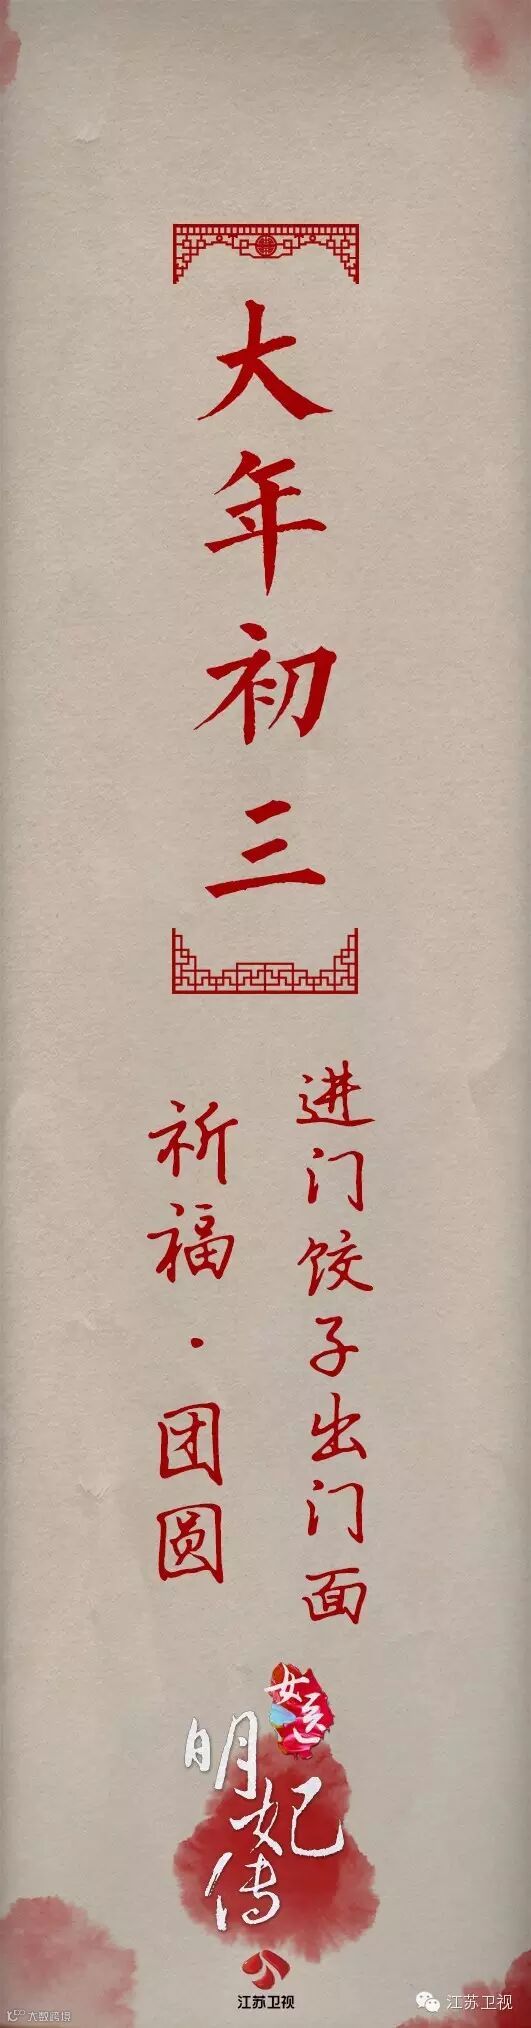 大年初三
进门饺子出门面
祈福·团圆
女医
明妃传
江苏卫视
江苏卫视
大数跨境